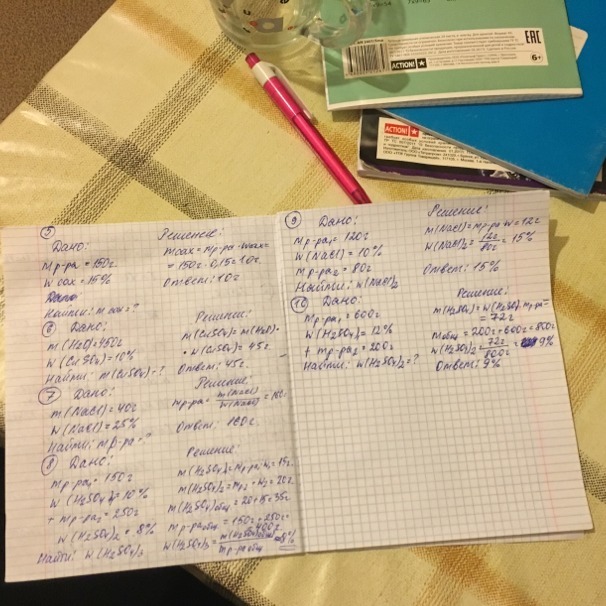 ACTION!
EAC
6+
ACTION!
5
Дано:
Mр-ра = 150г
W сах = 15%
Найти: m сах = ?
Решение:
mсах = Mр-ра · Wсах =
= 150г · 0,15 = 10г.
Ответ: 10г
6
Дано:
m(H2O) = 450г
W(CuSO4) = 10%
Найти: m(CuSO4) - ?
Решение:
m(CuSO4) = m(H2O) ·
· W(CuSO4) = 45г.
Ответ: 45г.
7
Дано:
m(NaCl) = 40г
W(NaCl) = 25%
Найти: mр-ра - ?
Решение:
mр-ра = m(NaCl) / W(NaCl) = 160г
Ответ: 160г.
8
Дано:
mр-ра1 = 150г
W(H2SO4)1 = 10%
+ mр-ра2 = 250г
W(H2SO4)2 = 8%
Найти: W(H2SO4)3
Решение:
m(H2SO4)1 = mр-ра1 · W1 = 15г.
m(H2SO4)2 = mр2 · W2 = 20г.
m(H2SO4)общ = 20 + 15 = 35г
mр-ра общ = 150г + 250г =
400г
W(H2SO4)3 = m(H2SO4)общ / mр-ра общ
9
Дано:
mр-ра1 = 120г
W(NaCl) = 10%
mр-ра2 = 80г
Найти: W(NaCl)2
Решение:
m(NaCl) = mр-ра · W = 12г
W(NaCl)2 = 12г / 80г = 15%
Ответ: 15%
10
Дано:
mр-ра1 = 600г
W(H2SO4)1 = 12%
+ mр-ра2 = 200г
Найти: W(H2SO4)2 = ?
Решение:
m(H2SO4) = W(H2SO4) · mр-ра =
= 72г
mобщ = 200г + 600г = 800г
W(H2SO4)2 = 72г / 800г = 9%
Ответ: 9%